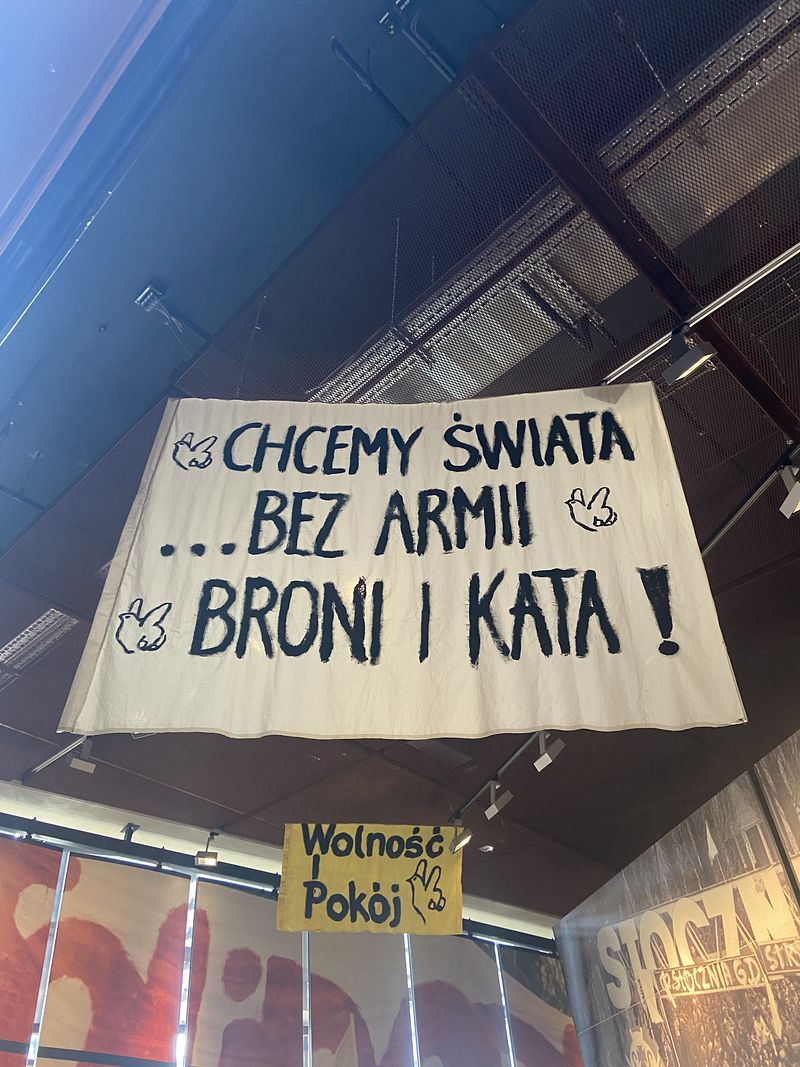 CHCEMY ŚWIATA
...BEZ ARMII
BRONI I KATA!
Wolność
i
Pokój
STOCZN
STOCZNIA GD. STR